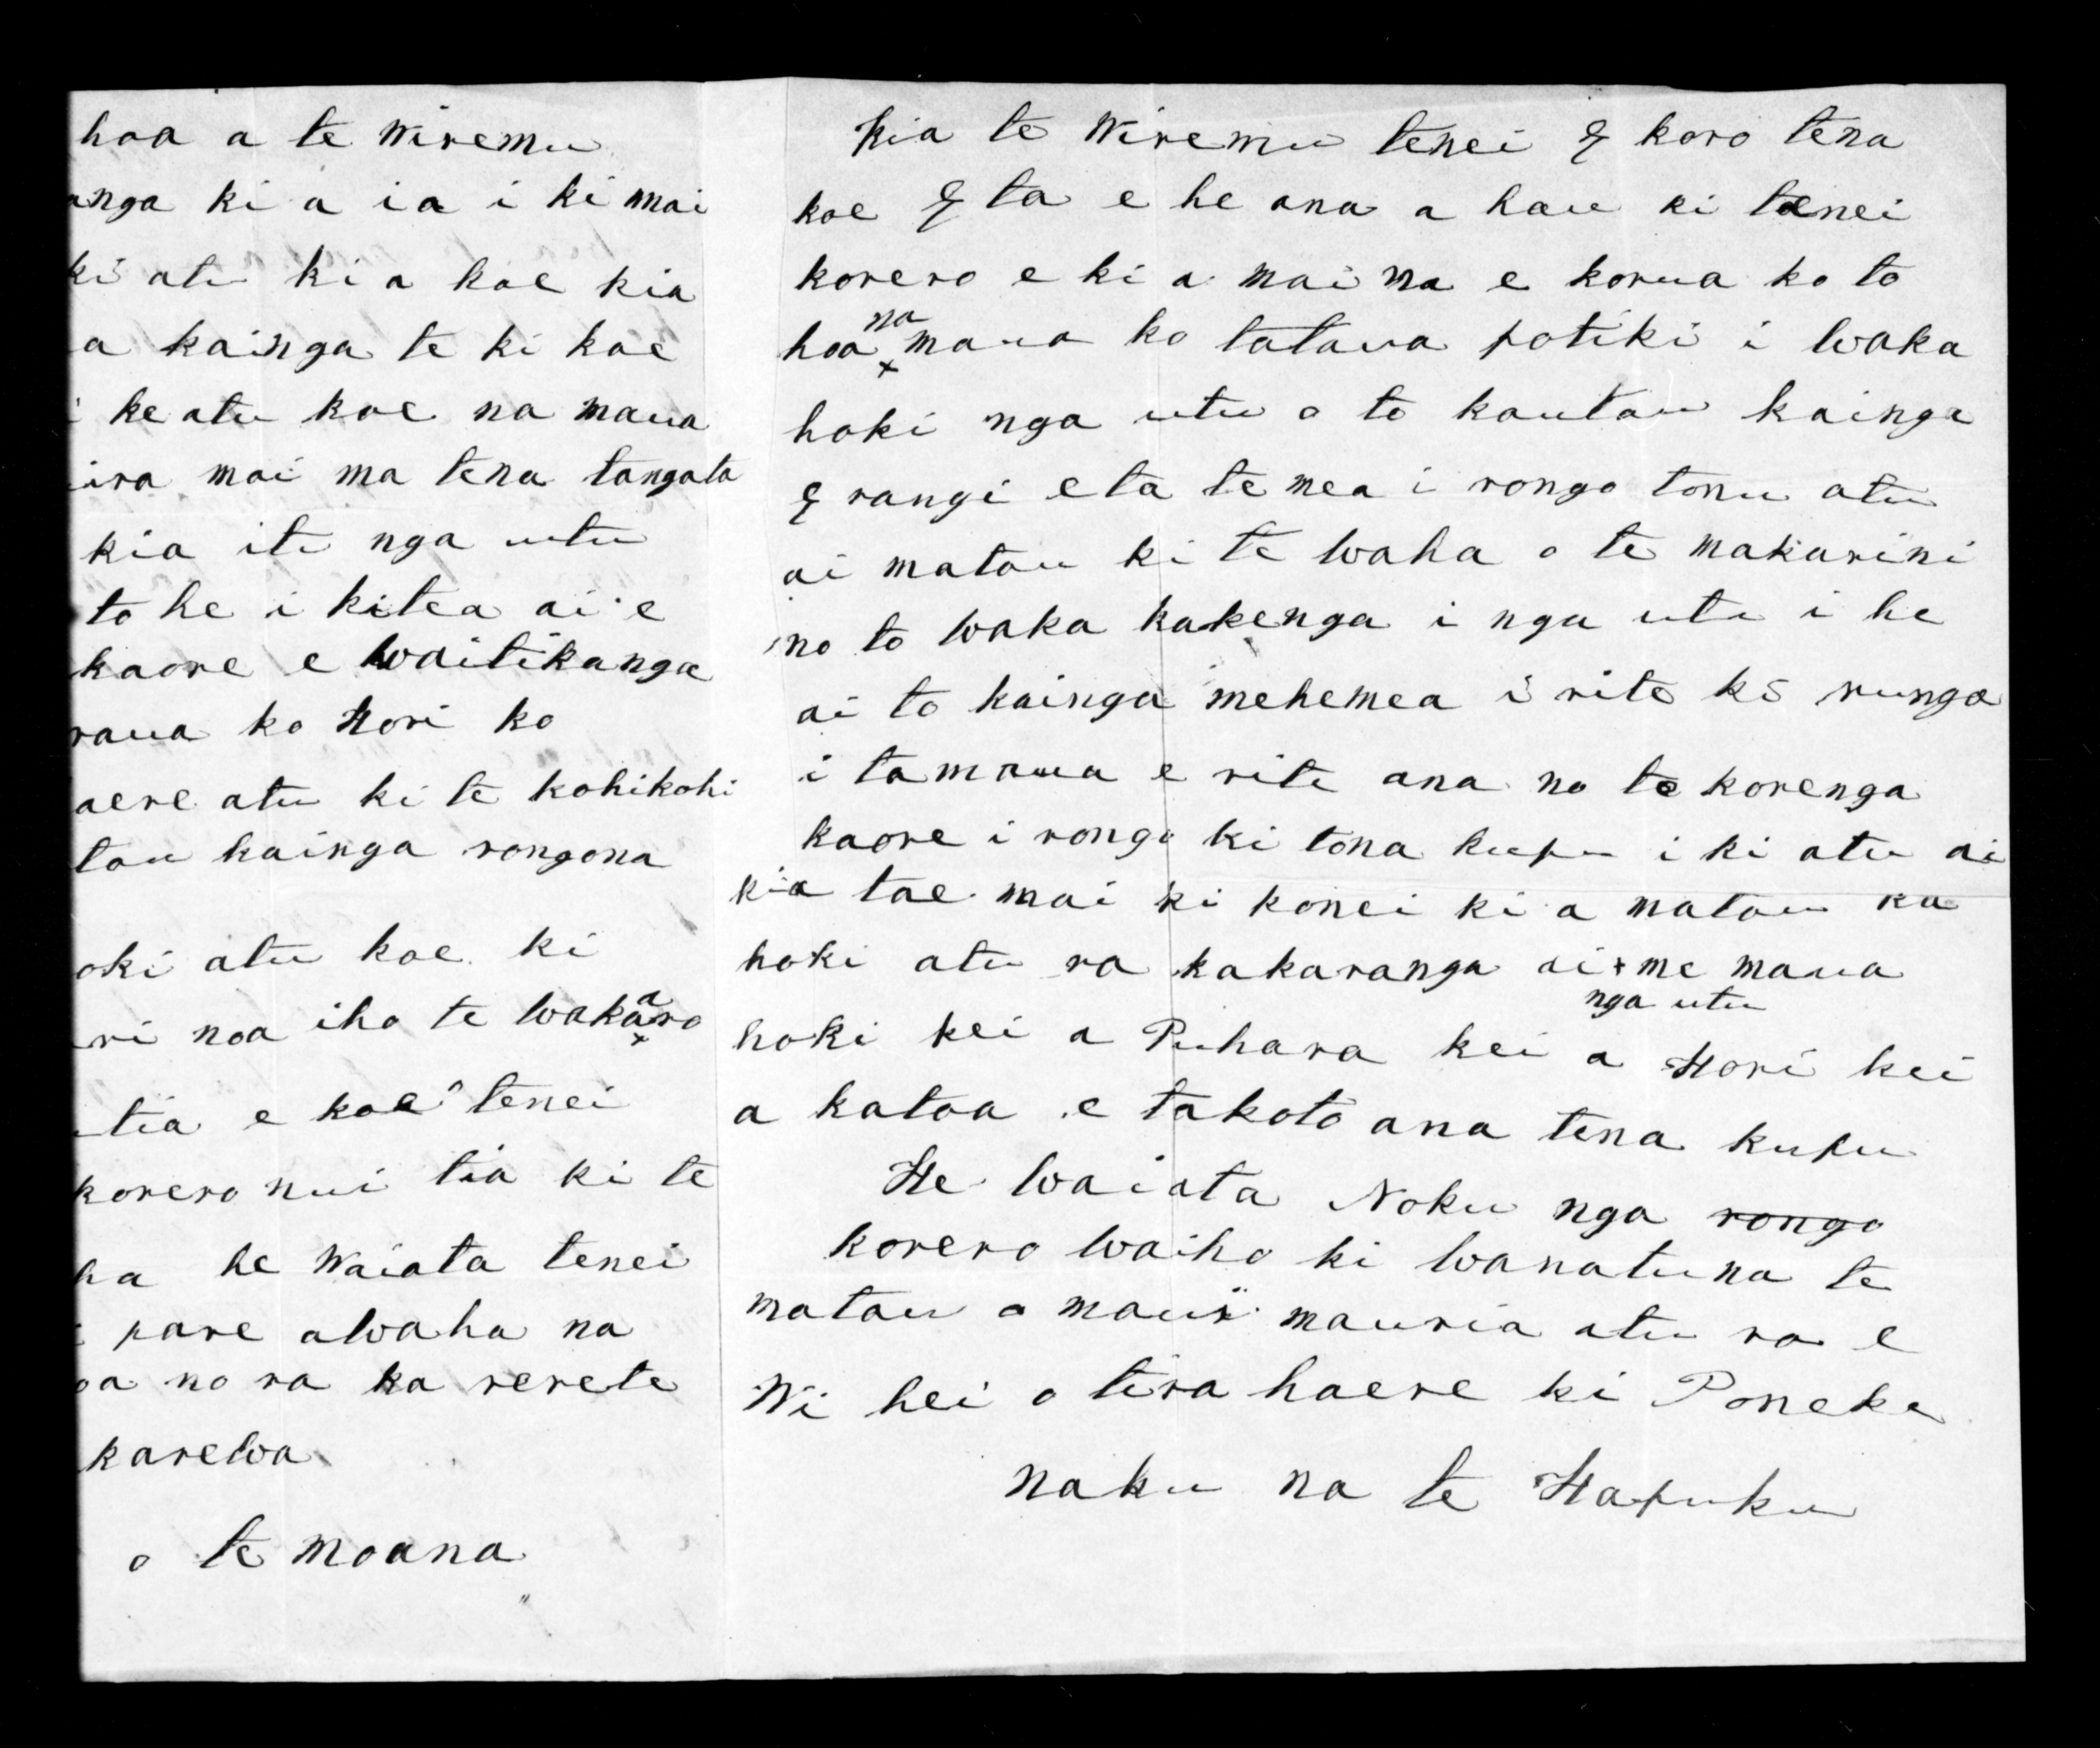 hoa a te Wiremu
anga ki a ia i ki mai
ki atu ki a koe kia
a kainga te ki koe
i ke atu koe na maua
ira mai ma tena tangata
kia ite nga utu
to he i kitea ai e
kaore e waitikanga
raua ko Hori ko
aere atu ki te kohikohi
tou kainga rongona
oki atu koe ki
ri noa iho te wakaaro
tia e koe tenei
korero nui tia ki te
ha he Waiata tenei
i pare awaha na
oa no ra ka rerete
karewa
o te moana
Kia te Wiremu tenei E koro tena
koe E ta e he ana a hau ki tenei
korero e ki a mai na e korua ko to
hoa na maua ko tataua potiki i waka
hoki nga utu o to koutou kainga
E rangi eta te mea i rongo tonu atu
ai matou ki te waha o te makarini
no to waka kakenga i nga utu i he
ai to kainga mehemea i rite ki runga
i ta maua e rite ana no te korenga
kaore i rongo ki tona kupu i ki atu ai
kia tae mai ki konei ki a matou ka
hoki atu ra kakaranga ai me maua
hoki kei a Puhara kei a Hori nga utu kei
a katoa e takoto ana tena kupu
He waiata Noku nga rongo
korero waiho ki wanatuna te
matau a maui mauria atu ra e
Wi hei o tira haere ki Poneke
naku na te Hapuku